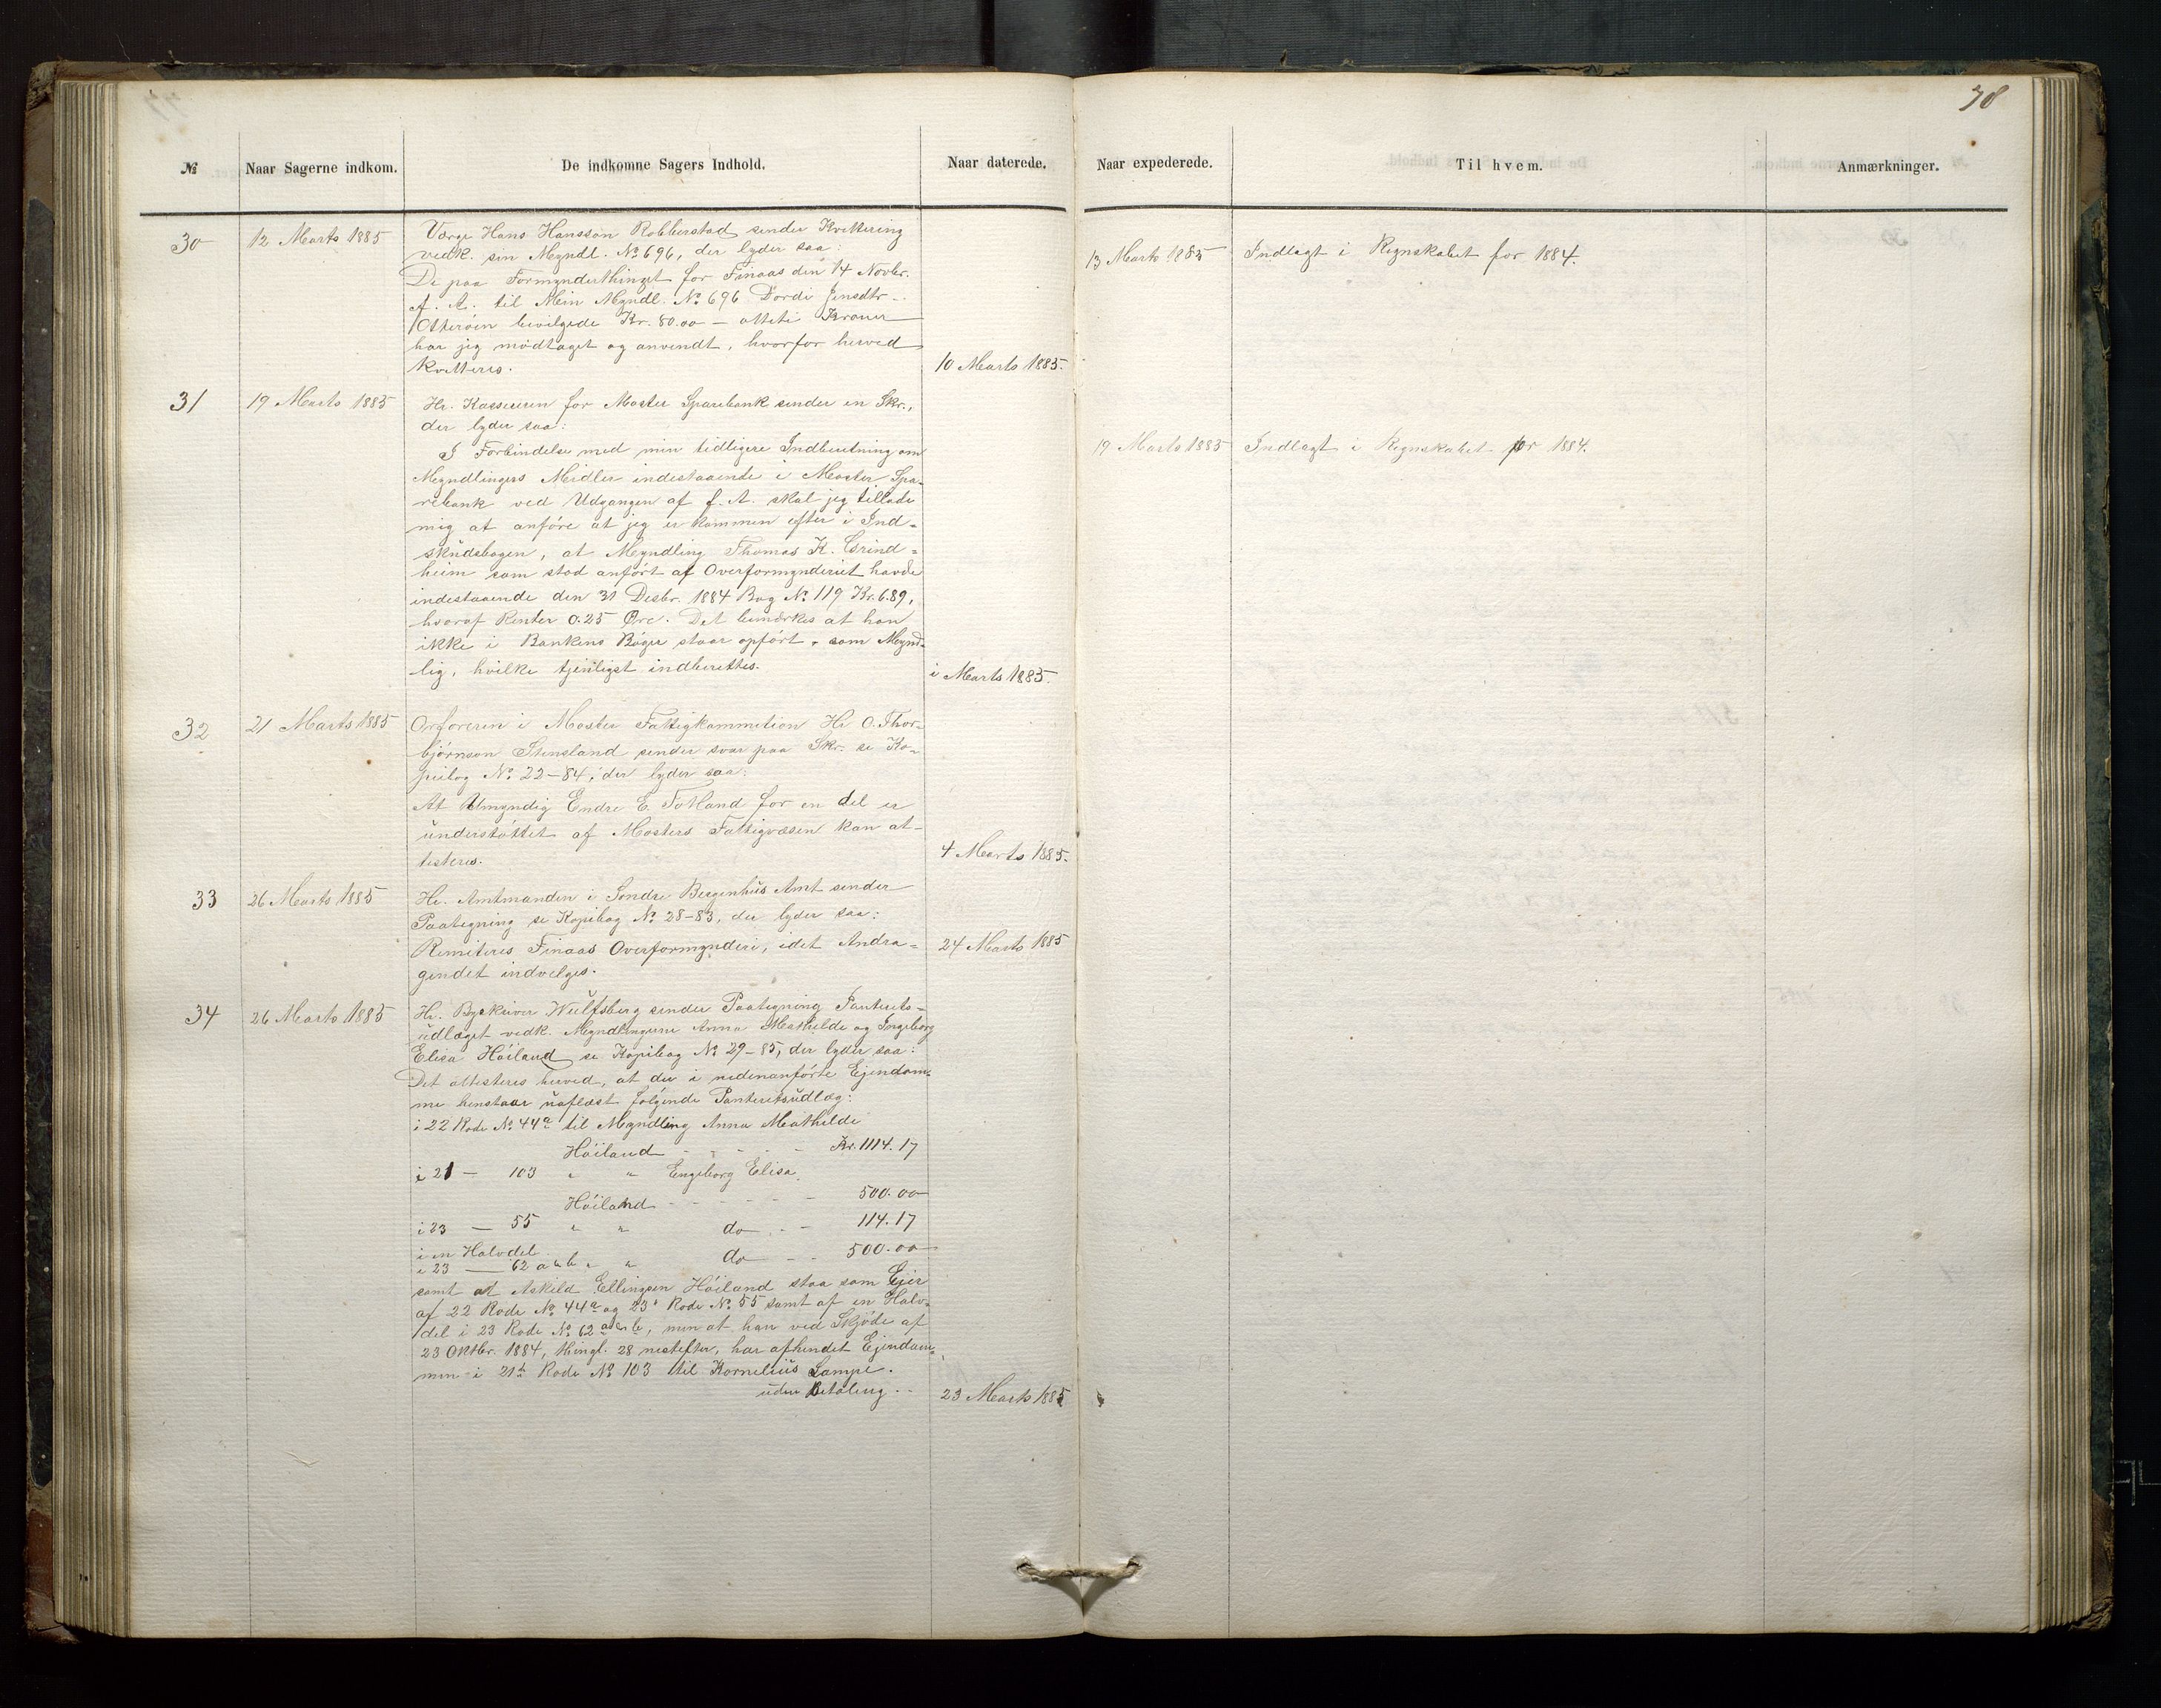 78
№ Naar Sagerne indkom. De indkomne Sagers Indhold. Naar daterede. Naar expederede. Til hvem. Anmærkninger.
30 12 Marts 1885 Værge Hans Hansson Robberstad sender Kvittering
vedk. sin Myndl. № 696, der lyder saa:
De paa Formynderthinget for Finaas den 14 Novbr.
f. A. til Min Myndl. № 696 Dordi Jensdtr
Otteröen bevilgede Kr. 80.00 — otteti Kroner
har jeg modtaget og anvendt, hvorfor herved
kvitteres. 10 Marts 1885.
13 Marts 1885 Indlagt i Regnskabet for 1884.
31 19 Marts 1885 Hr. Kassereren for Moster Sparebank sender en Skr.,
der lyder saa:
I Forbindelse med min tidligere Indberetning om
Myndlingers Midler indestaaende i Moster Spa-
rebank ved Udgangen af f. A. skal jeg tillade
mig at anföre at jeg er kommen efter i Ind-
skudsbogen, at Myndling Thomas K. Grind-
heim som stod anfört af Overformynderiet havde
indestaaende den 31 Desbr. 1884 Bog № 119 Kr. 6.89,
hvoraf Renter 0.25 Øre. Det bemærkes at han
ikke i Bankens Böger staar opfört som Mynd-
lig, hvilke tjenligst indberettes. i Marts 1885.
19 Marts 1885 Indlagt i Regnskabet for 1884.
32 21 Marts 1885 Orföreren i Moster Fattigkommition Hr O. Thor-
björnson Stensland sender svar paa Skr. se Ko-
peibog № 22-84, der lyder saa:
At Umyndig Endre E. Totland for en del er
understöttet af Mosters Fattigvæsen kan at-
testeres. 4 Marts 1885.
33 26 Marts 1885 Hr. Amtmanden i Söndre Bergenhus Amt sender
Paategning se Kopibog № 28-83, der lyder saa:
Remiteres Finaas Overformynderi, idet Andra-
gendet indvelges. 24 Marts 1885
34 26 Marts 1885 Hr. Byskriver Wulfsberg sender Paategning Panterets-
udlæget vedk. Myndlingerne Anna Mathilde og Ingeborg
Elisa Höiland se Kopibog № 29-85, der lyder saa:
Det attesteres herved, at der i nedenanförte Ejendom-
me henstaar uaflæst fölgende Panteretsudlæg:
i 22 Rode № 44a til Myndling Anna Mathilde
Höiland - - - - - Kr. 1114.17
i 21 — 103 " " Engeborg Elisa
Höiland - - - - - 500.00
i 23 — 55 " " do - - 114.17
i en Halvdel
i 23 — 62 a & b " " do - - 500.00
samt at Askild Ellingsen Höiland staa som Ejer
af 22 Rode № 44a og 23' Rode № 55 samt af en Halv-
del i 23 Rode № 62 a & b, men at han ved Skjöde af
23 Oktbr. 1884, thingl. 28 nestefter, har afhendet Ejendom-
men i 21de Rode № 103 til Kornelius Lampe.
uden Betaling. 23 Marts 1885